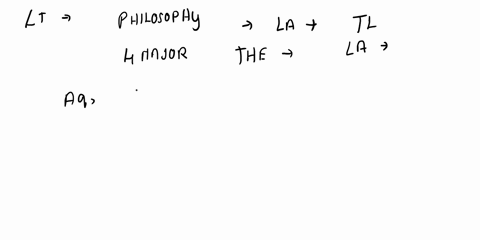 LT → PHILOSOPHY → LA → TL
4 MAJOR THE → LA →
Aq,